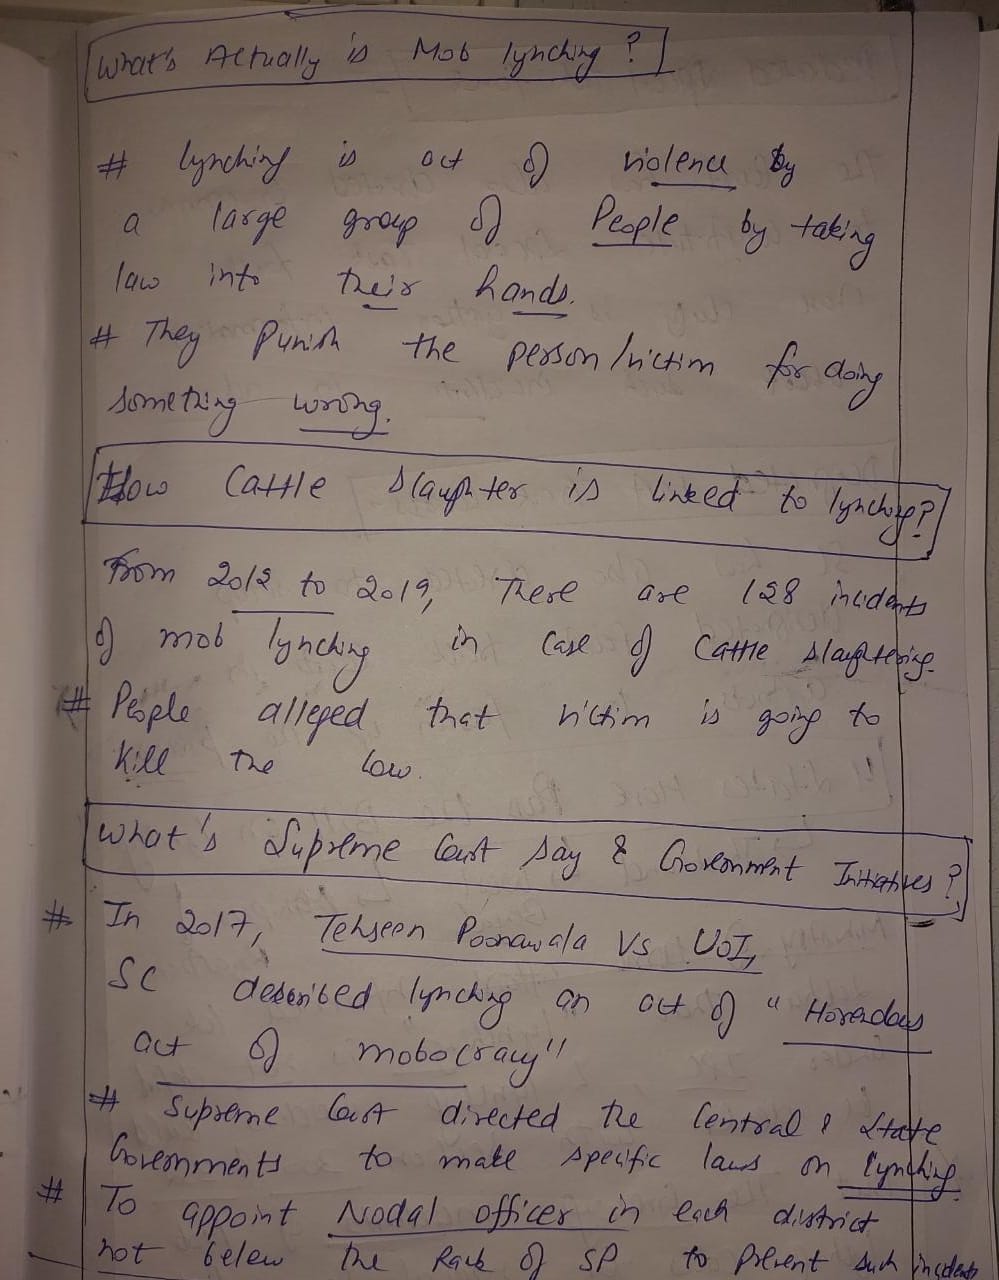 What's Actually is Mob lynching ?
# lynching is act of violence by
a large group of People by taking
law into their hands.
# They Punish the person/victim for doing
something wrong.
How Cattle Slaughter is linked to lynching?
From 2012 to 2019, There are 128 incidents
of mob lynching in case of Cattle slaughtering.
# People alleged that victim is going to
kill the cow.
What's Supreme Court say & Government Initiatives ?
# In 2017, Tehseen Poonawala Vs UOI,
SC described lynching an act of "Horendous
act of mobocracy"
# Supreme Court directed the Central & State
Governments to make specific laws on lynching.
# To appoint Nodal officer in each district
not below the Rank of SP to prevent such incidents